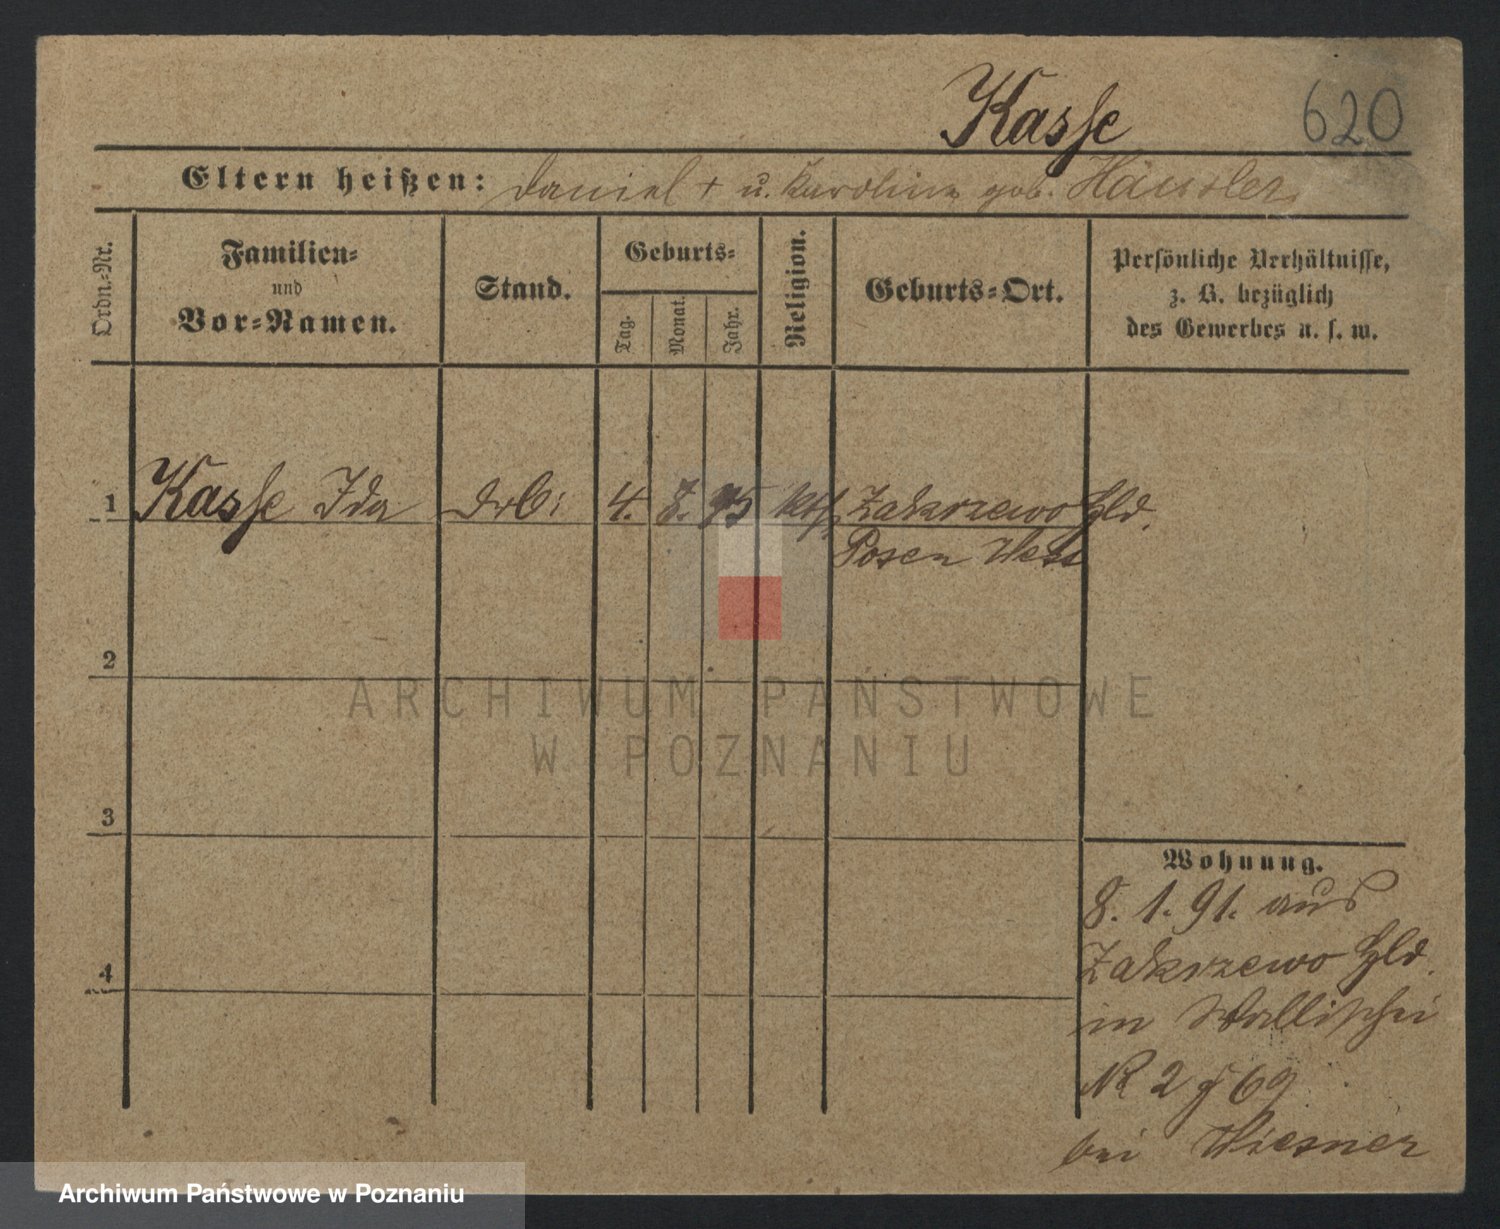 Kasse 620
Eltern heißen: Daniel + u. Karoline geb. Häusler
Ordn.-Nr. Familien- und Vor-Namen. Stand. Geburts- Tag. Monat. Jahr. Religion. Geburts-Ort. Persönliche Verhältnisse, z. B. bezüglich des Gewerbes u. s. w.
1 Kasse Ida 4. 75 kth Zakrzewo Hld.
Posen West
2
ARCHIWUM PAŃSTWOWE
W POZNANIU
3
Wohnung.
8. 1. 91. aus
4
Zakrzewo Hld.
in Wallischei
N 2 69
bei Wiesner
Archiwum Państwowe w Poznaniu